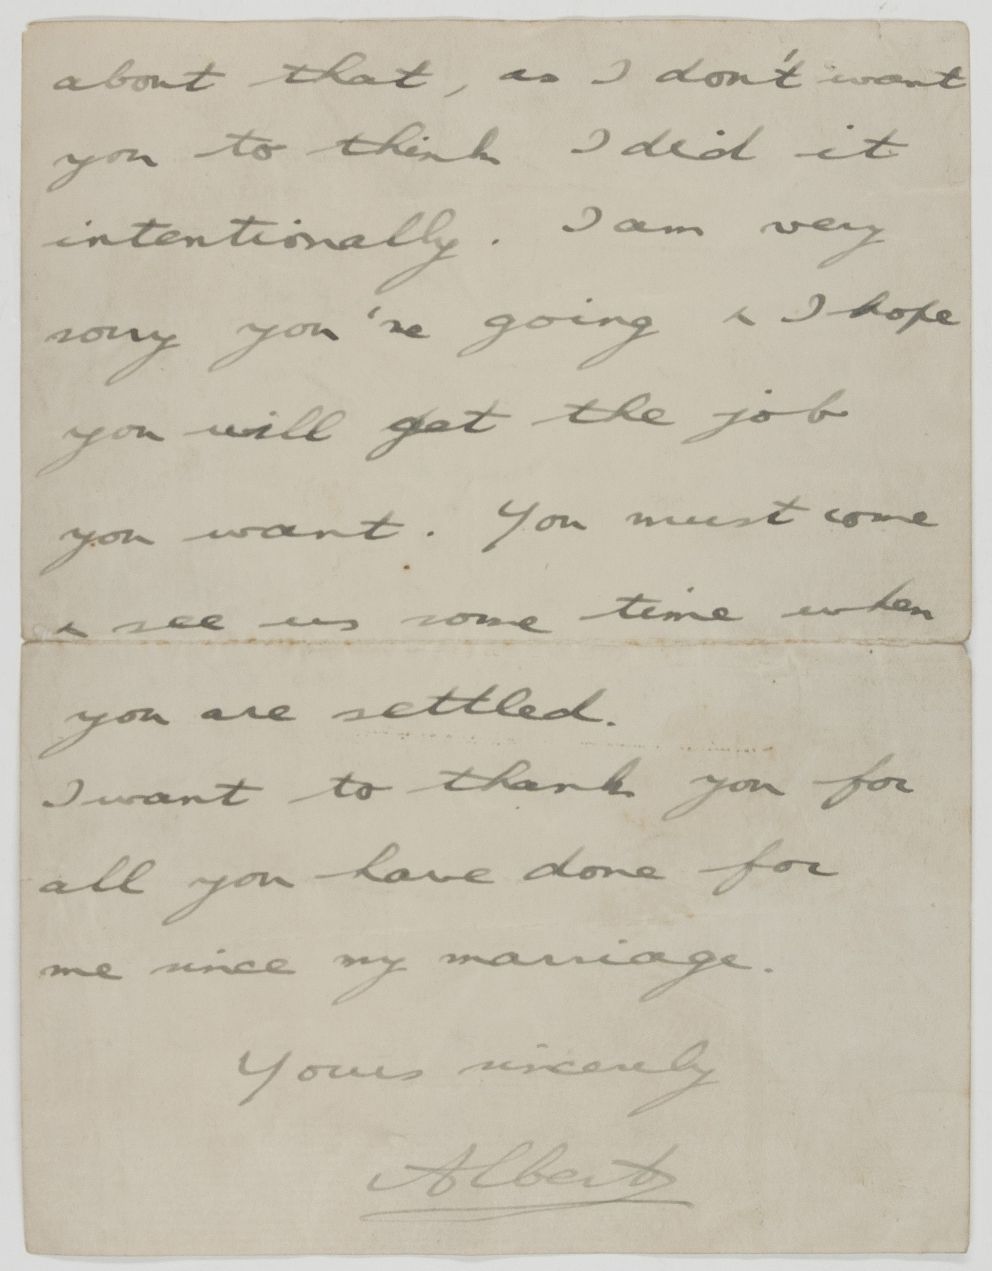 about that, as I don't want
you to think I did it
intentionally. I am very
sorry you're going & I hope
you will get the job
you want. You must come
& see us some time when
you are settled.
I want to thank you for
all you have done for
me since my marriage.
Yours sincerely
Albert